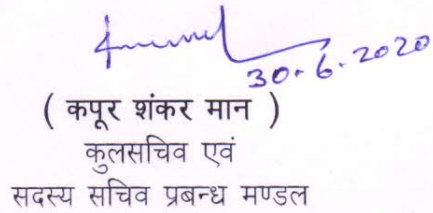 30.6.2020
( कपूर शंकर मान )
कुलसचिव एवं
सदस्य सचिव प्रबन्ध मण्डल